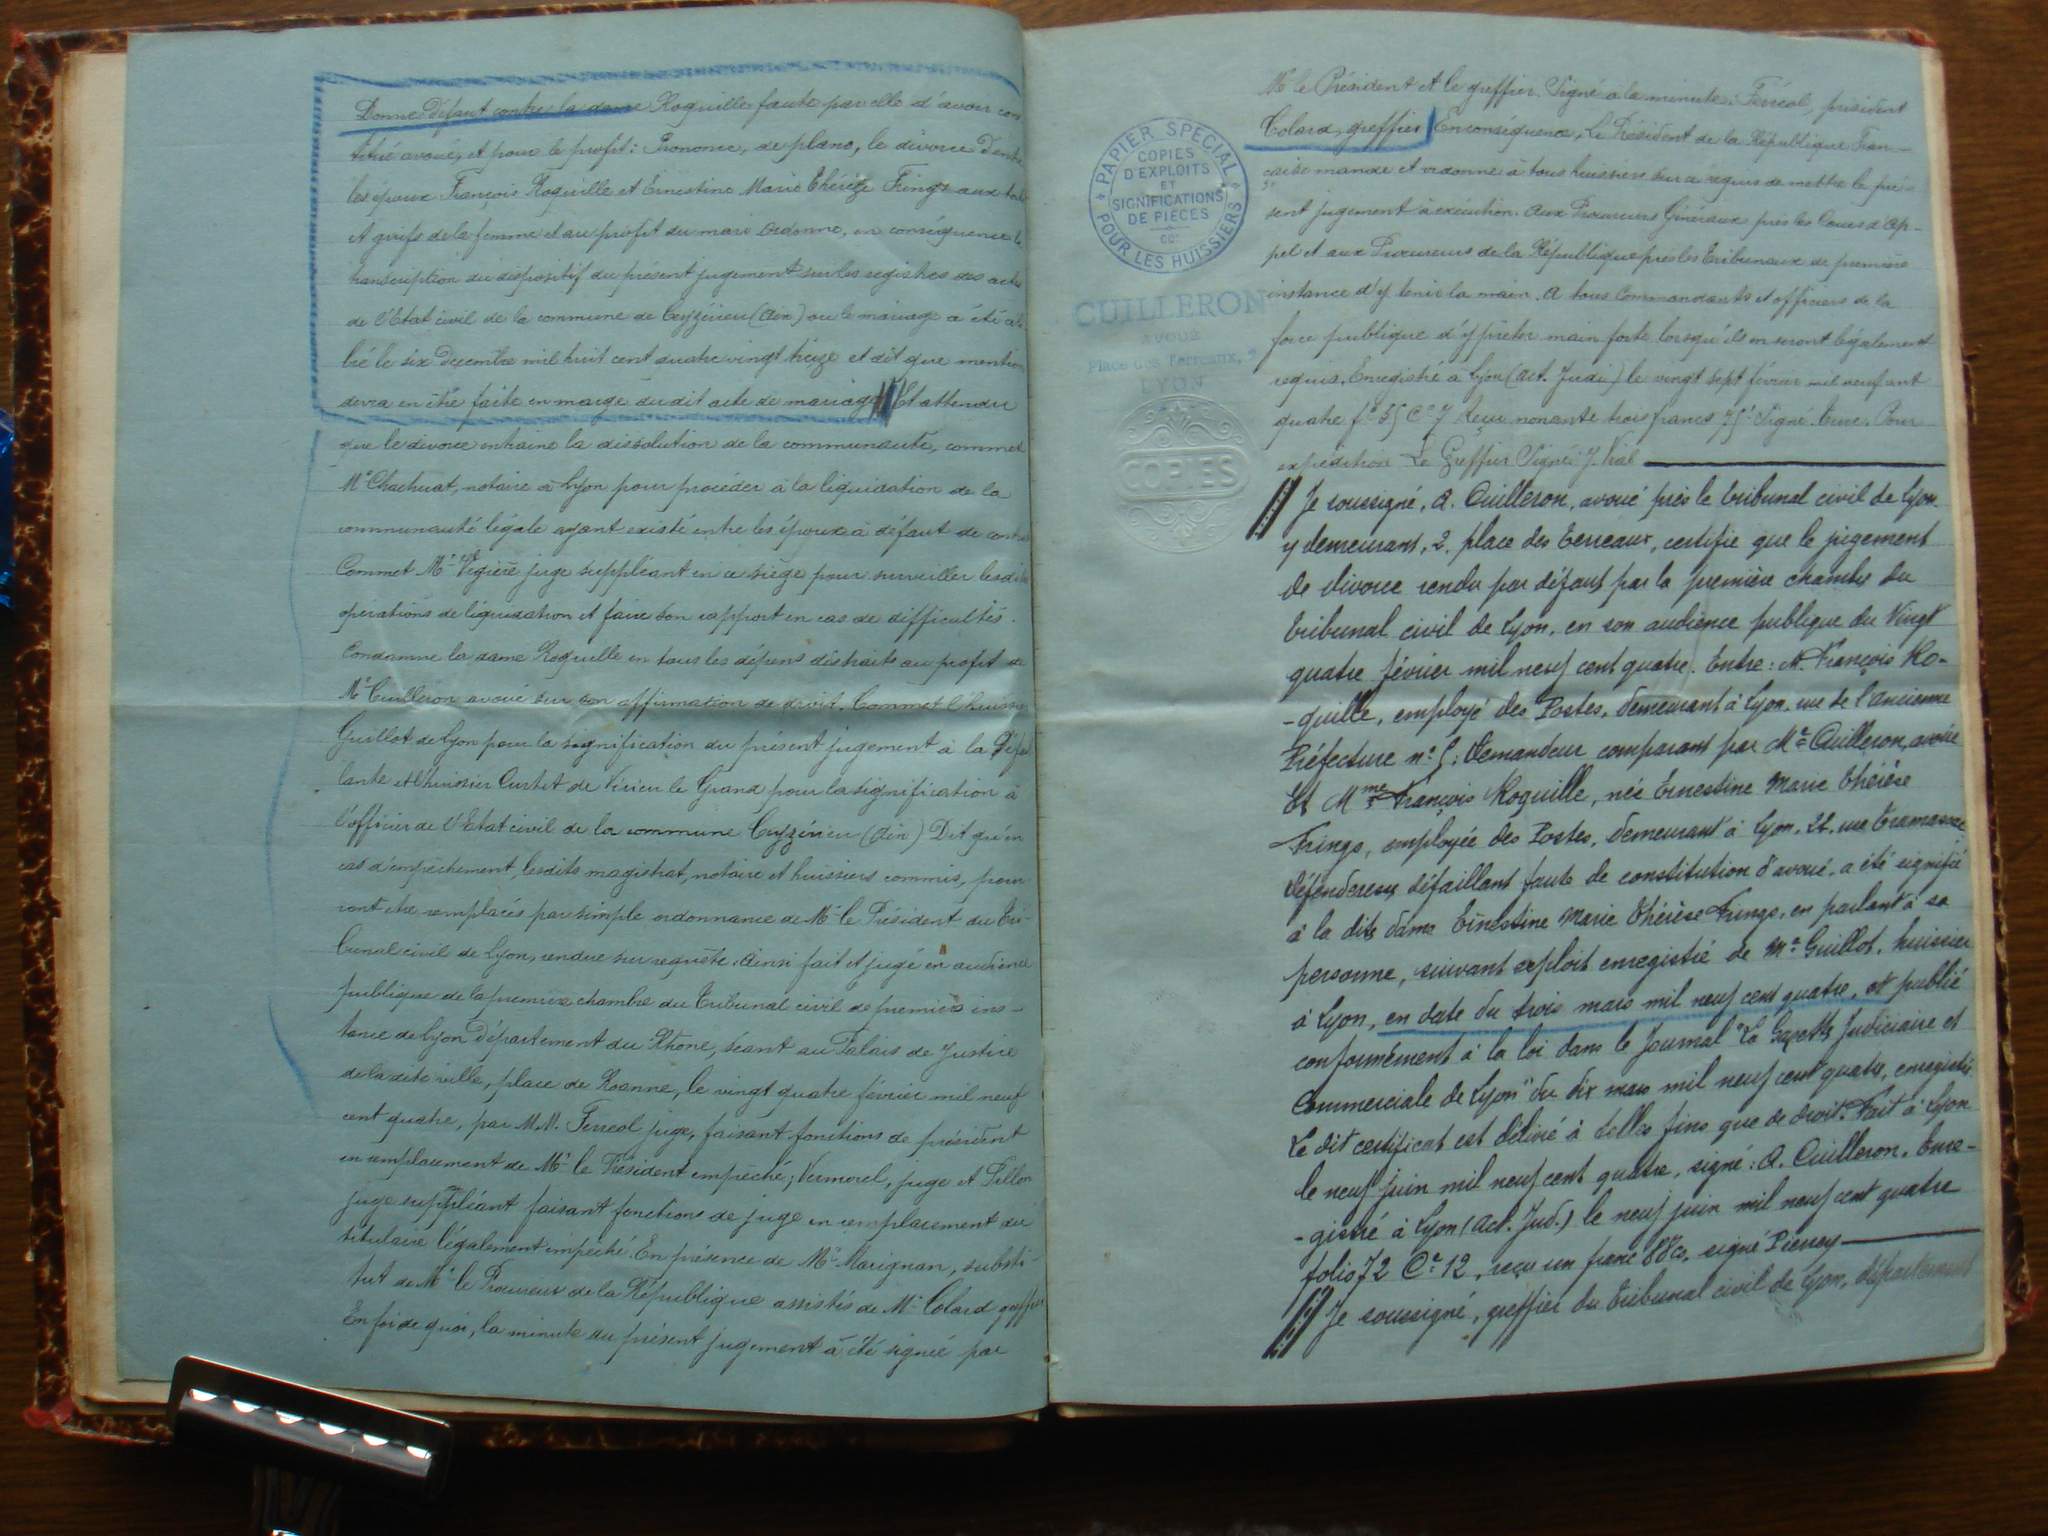 Donne Défaut contre la dame Roquille faute par elle d'avoir cons
titué avoué, et pour le profit: Prononce, de plano, le divorce d'entre
les époux François Roquille et Ernestine Marie Thérèze Frings aux torts
et griefs de la femme et au profit du mari Ordonne, en conséquence la
transcription du dispositif du présent jugement sur les registres des actes
de l'Etat civil de la commune de Ceyzérieu (Ain) ou le mariage a été célé
bré le six Decembre mil huit cent quatre vingt treize et dit que mention
devra en être faite en marge du dit acte de mariage Et attendu
que le divorce entraine la dissolution de la communauté, commet
Me Chachuat, notaire à Lyon pour procéder à la liquidation de la
communauté légale ayant existé entre les époux à défaut de contrat
Commet Mr juge suppléant en ce siège pour surveiller lesdites
opérations de liquidation et faire son rapport en cas de difficultés.
Condamne la dame Roquille en tous les dépens distraits au profit de
Me Cuilleron avoué sur son affirmation de droit. Commet l'huissier
Guillot de Lyon pour la signification du présent jugement à la Défail
lante et l'huissier Curtet de Virieu le Grand pour la signification à
l'officier de l'Etat civil de la commune Ceyzérieu (Ain) Dit qu'en
cas d'empêchement, lesdits magistrat, notaire et huissiers commis, pour
ront être remplacés par simple ordonnance de Mr le Président du Tri-
bunal civil de Lyon, rendue sur requête. Ainsi fait et jugé en audience
publique de la première chambre du Tribunal civil de première ins-
tance de Lyon Département du Rhône, séant au Palais de Justice
de la dite ville, place de Roanne, le vingt quatre février mil neuf
cent quatre, par MM. Ferréol juge, faisant fonctions de président
en remplacement de Mr le Président empêché; Vermorel, juge et Pillon
juge suppléant faisant fonctions de juge en remplacement du
titulaire légalement empêché. En présence de Mr Marignan, substi-
tut de Mr le Procureur de la République assistés de Mr Colard greffier
En foi de quoi, la minute du présent jugement a été signée par
Mr le Président et le greffier. Signé à la minute. Ferréol, président
Colard, greffier En conséquence, Le Président de la République Fran-
çaise mande et ordonne à tous huissiers sur ce requis de mettre le pré-
sent jugement à exécution. Aux Procureurs Généraux près les Cours d'Ap-
pel et aux Procureurs de la République près les Tribunaux de première
instance d'y tenir la main. A tous Commandants et officiers de la
force publique d'y prêter main forte lorsqu'ils en seront légalement
requis. Enregistré à Lyon (Act. Judi.) le vingt sept février mil neuf cent
quatre fo 35 Ce 7 Reçu nonante trois francs 75c Signé Pour
expédition Le Greffier Signé: J. Vial
PAPIER SPÉCIAL
COPIES
D'EXPLOITS
ET
SIGNIFICATIONS
DE PIÈCES
POUR LES HUISSIERS
CUILLERON
AVOUÉ
Place des Terreaux, 2
LYON
COPIES
Je soussigné, A. Cuilleron, avoué près le tribunal civil de Lyon
y demeurant, 2, place des Terreaux, certifie que le jugement
de divorce rendu par défaut par la première chambre du
tribunal civil de Lyon, en son audience publique du Vingt
quatre février mil neuf cent quatre. Entre: M. François Ro-
-quille, employé des Postes, demeurant à Lyon, rue de l'ancienne
Préfecture no 5; Demandeur comparant par Me Cuilleron, avoué
Et Mme François Roquille, née Ernestine Marie Thérèse
Frings, employée des Postes, demeurant à Lyon, 22, rue Tramassac
Défenderesse, défaillant faute de constitution d'avoué, a été signifié
à la dite dame Ernestine Marie Thérèse Frings, en parlant à sa
personne, suivant exploit enregistré de Me Guillot, huissier
à Lyon, en date du trois mars mil neuf cent quatre, et publié
conformément à la loi dans le Journal "La Gazette Judiciaire et
Commerciale de Lyon" du dix mars mil neuf cent quatre, enregistré
Le dit certificat est délivré à telles fins que de droit. Fait à Lyon
le neuf juin mil neuf cent quatre, signé: A. Cuilleron. Enre-
-gistré à Lyon (Act. Jud.) le neuf juin mil neuf cent quatre
folio 72 Ce 12, reçu un franc 88c, signé
Je soussigné, greffier du tribunal civil de Lyon, département